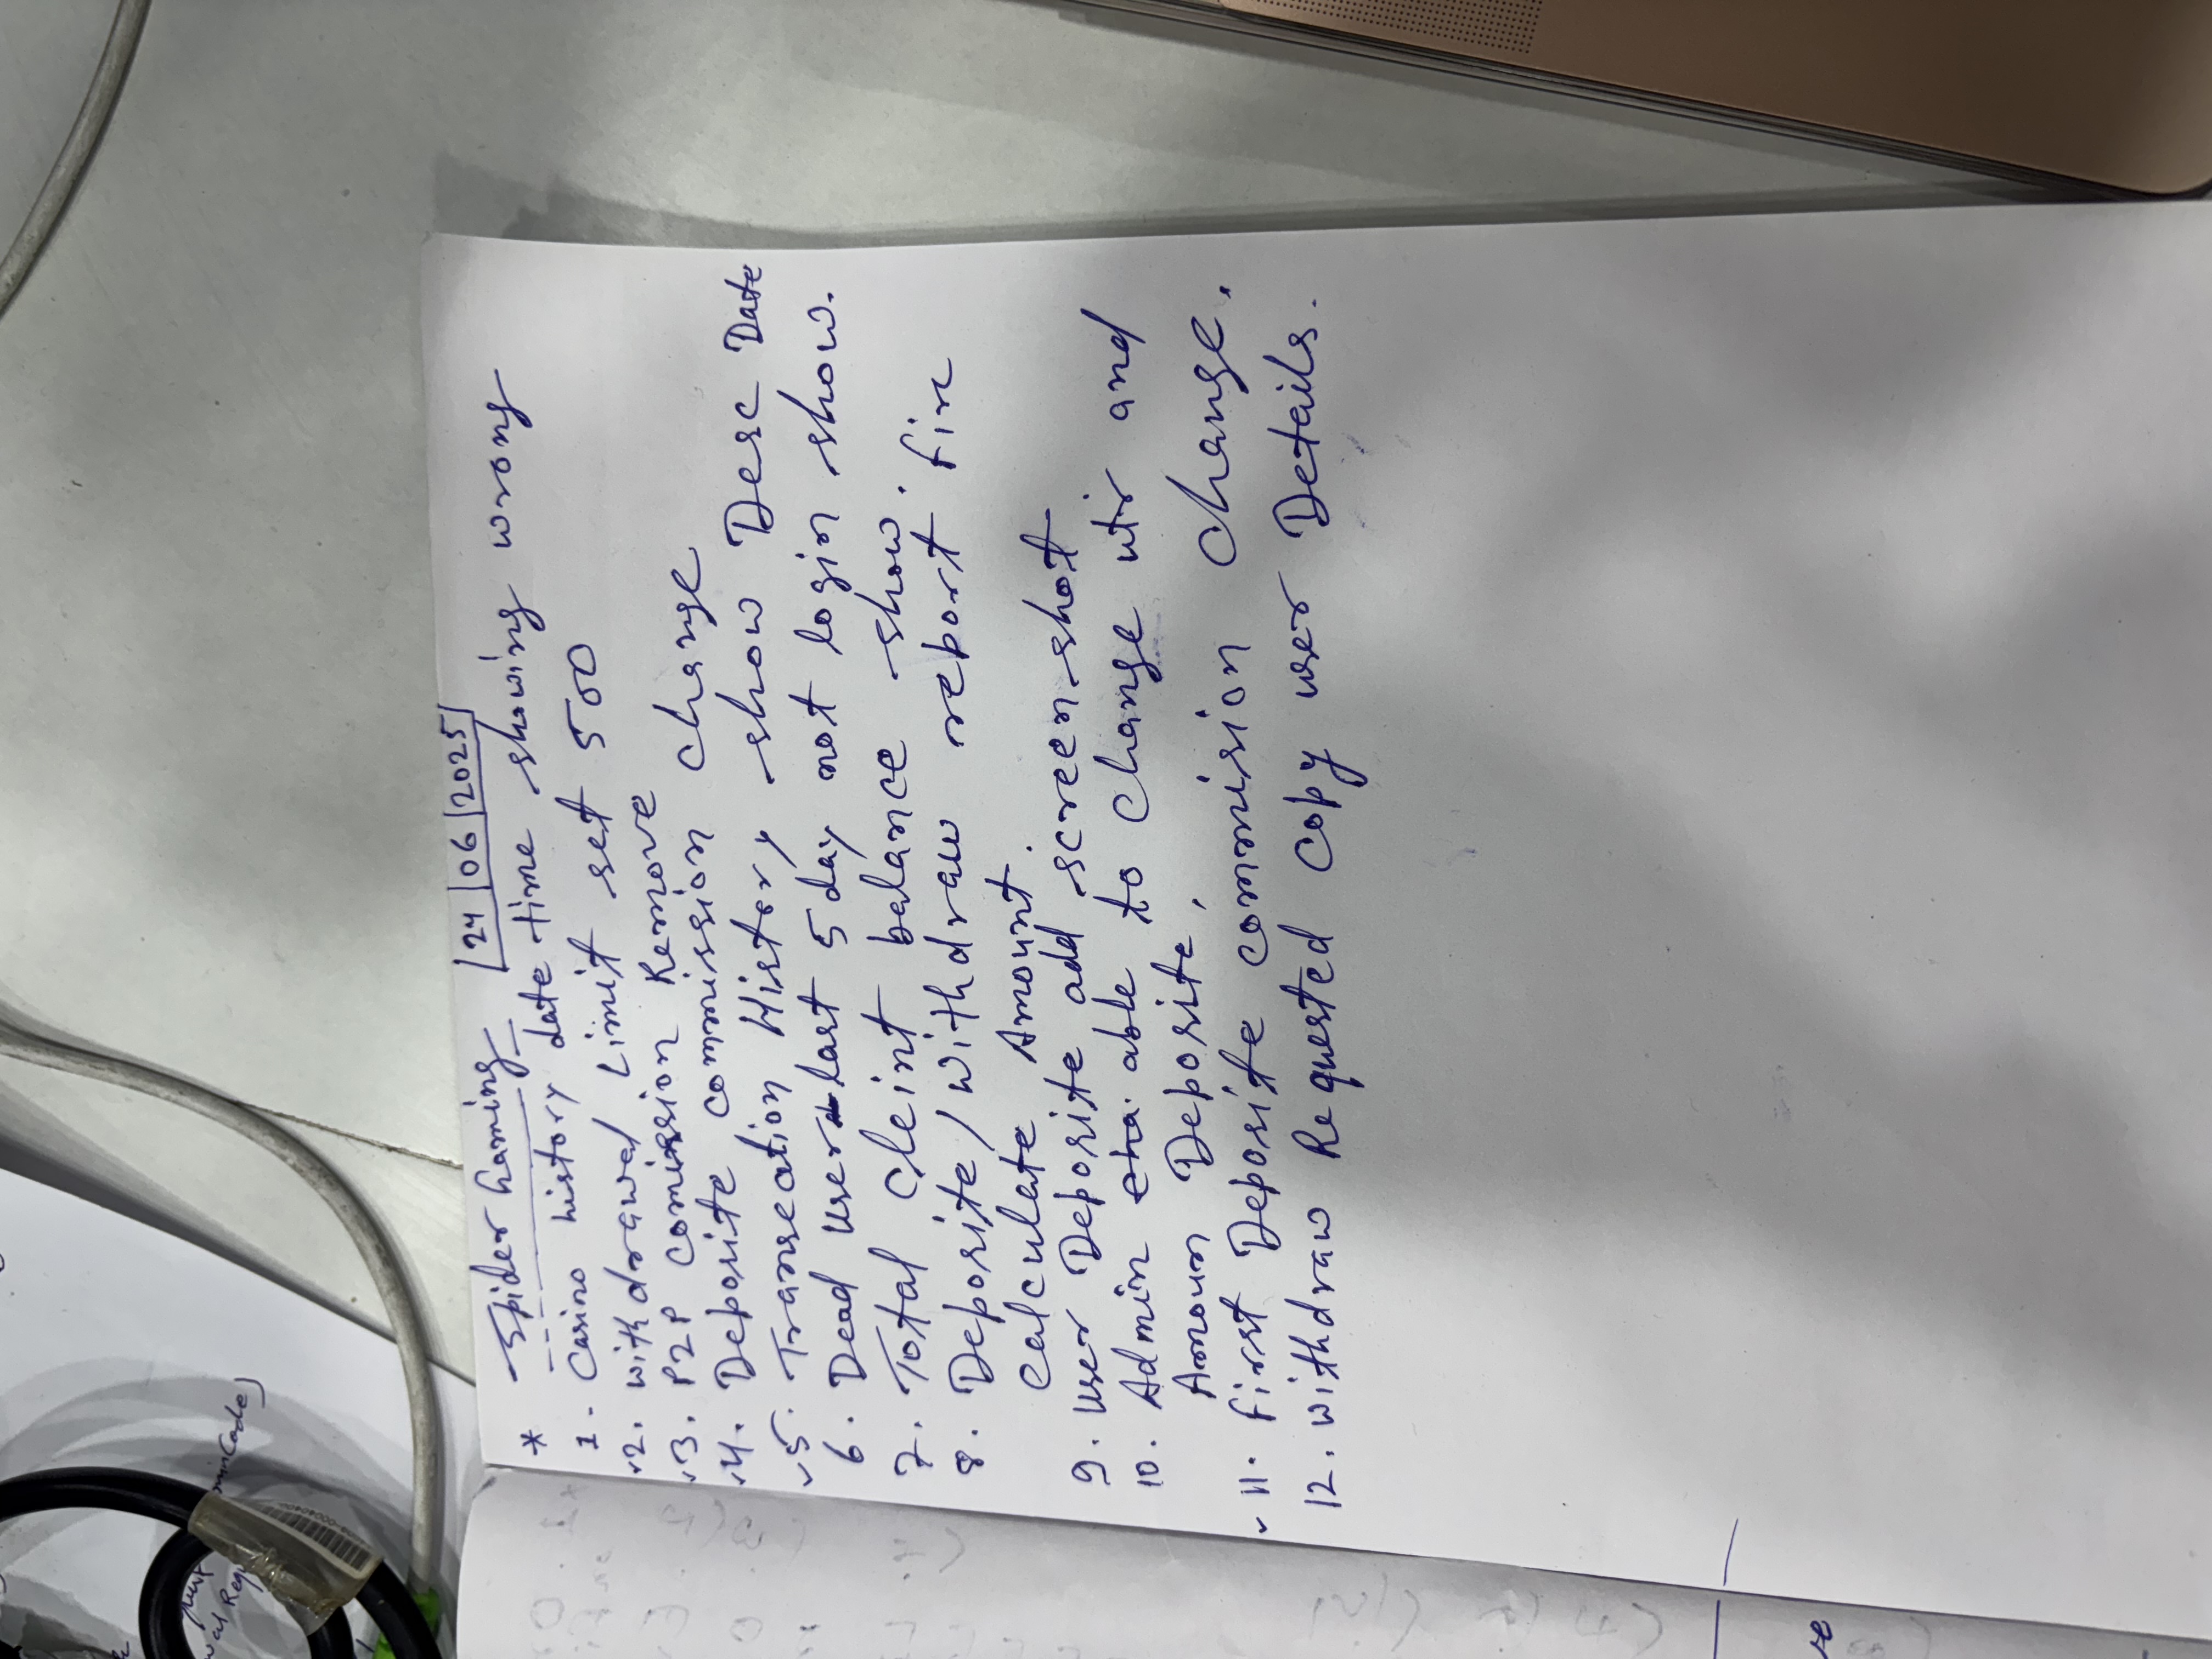 mincode)
wal Requ
* Spider Gaming |24|06|2025|
1. Casino history date time showing wrong
✓2. withdrawal Limit set 500
✓3. P2P comission Remove
✓4. Deposite commission change
✓5. Transecation History show Desc Date
6. Dead user last 5 day not login show.
7. Total cleint balance show.
8. Deposite / withdraw report fix
calculate Amount.
9. user Deposite add screenshot.
10. Admin able to change utr and
Amoun Deposite.
✓11. First Deposite commision change.
12. withdraw Requested Copy user Details.